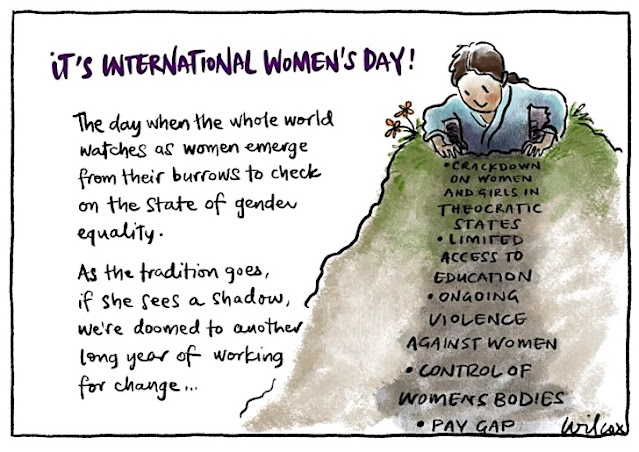 iT'S INTERNATIONAL WOMEN'S DAY!
The day when the whole world
watches as women emerge
from their burrows to check
on the state of gender
equality.
As the tradition goes,
if she sees a shadow,
we're doomed to another
long year of working
for change...
• CRACKDOWN
ON WOMEN
AND GIRLS IN
THEOCRATIC
STATES
• LIMITED
ACCESS TO
EDUCATION
• ONGOING
VIOLENCE
AGAINST WOMEN
• CONTROL OF
WOMENS BODIES
• PAY GAP
Wilcox